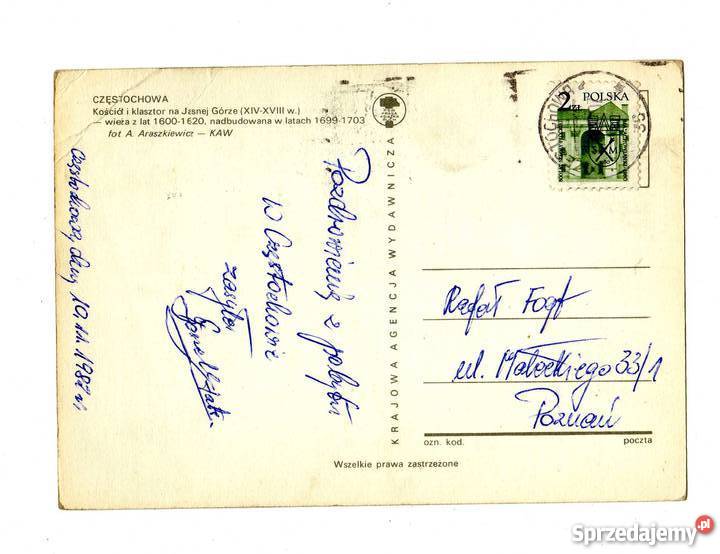 CZĘSTOCHOWA
Kościół i klasztor na Jasnej Górze (XIV-XVIII w.)
— wieża z lat 1600-1620, nadbudowana w latach 1699-1703
fot A. Araszkiewicz — KAW
Częstochowa, dnia 10.11.1982 r.
Pozdrowienia z pobytu
w Częstochowie
zasyła
KRAJOWA AGENCJA WYDAWNICZA
2 zł POLSKA
CZĘSTOCHOWA
Rafał Fogt
ul. Małeckiego 33/1
Poznań
ozn. kod. poczta
Wszelkie prawa zastrzeżone
Sprzedajemy.pl